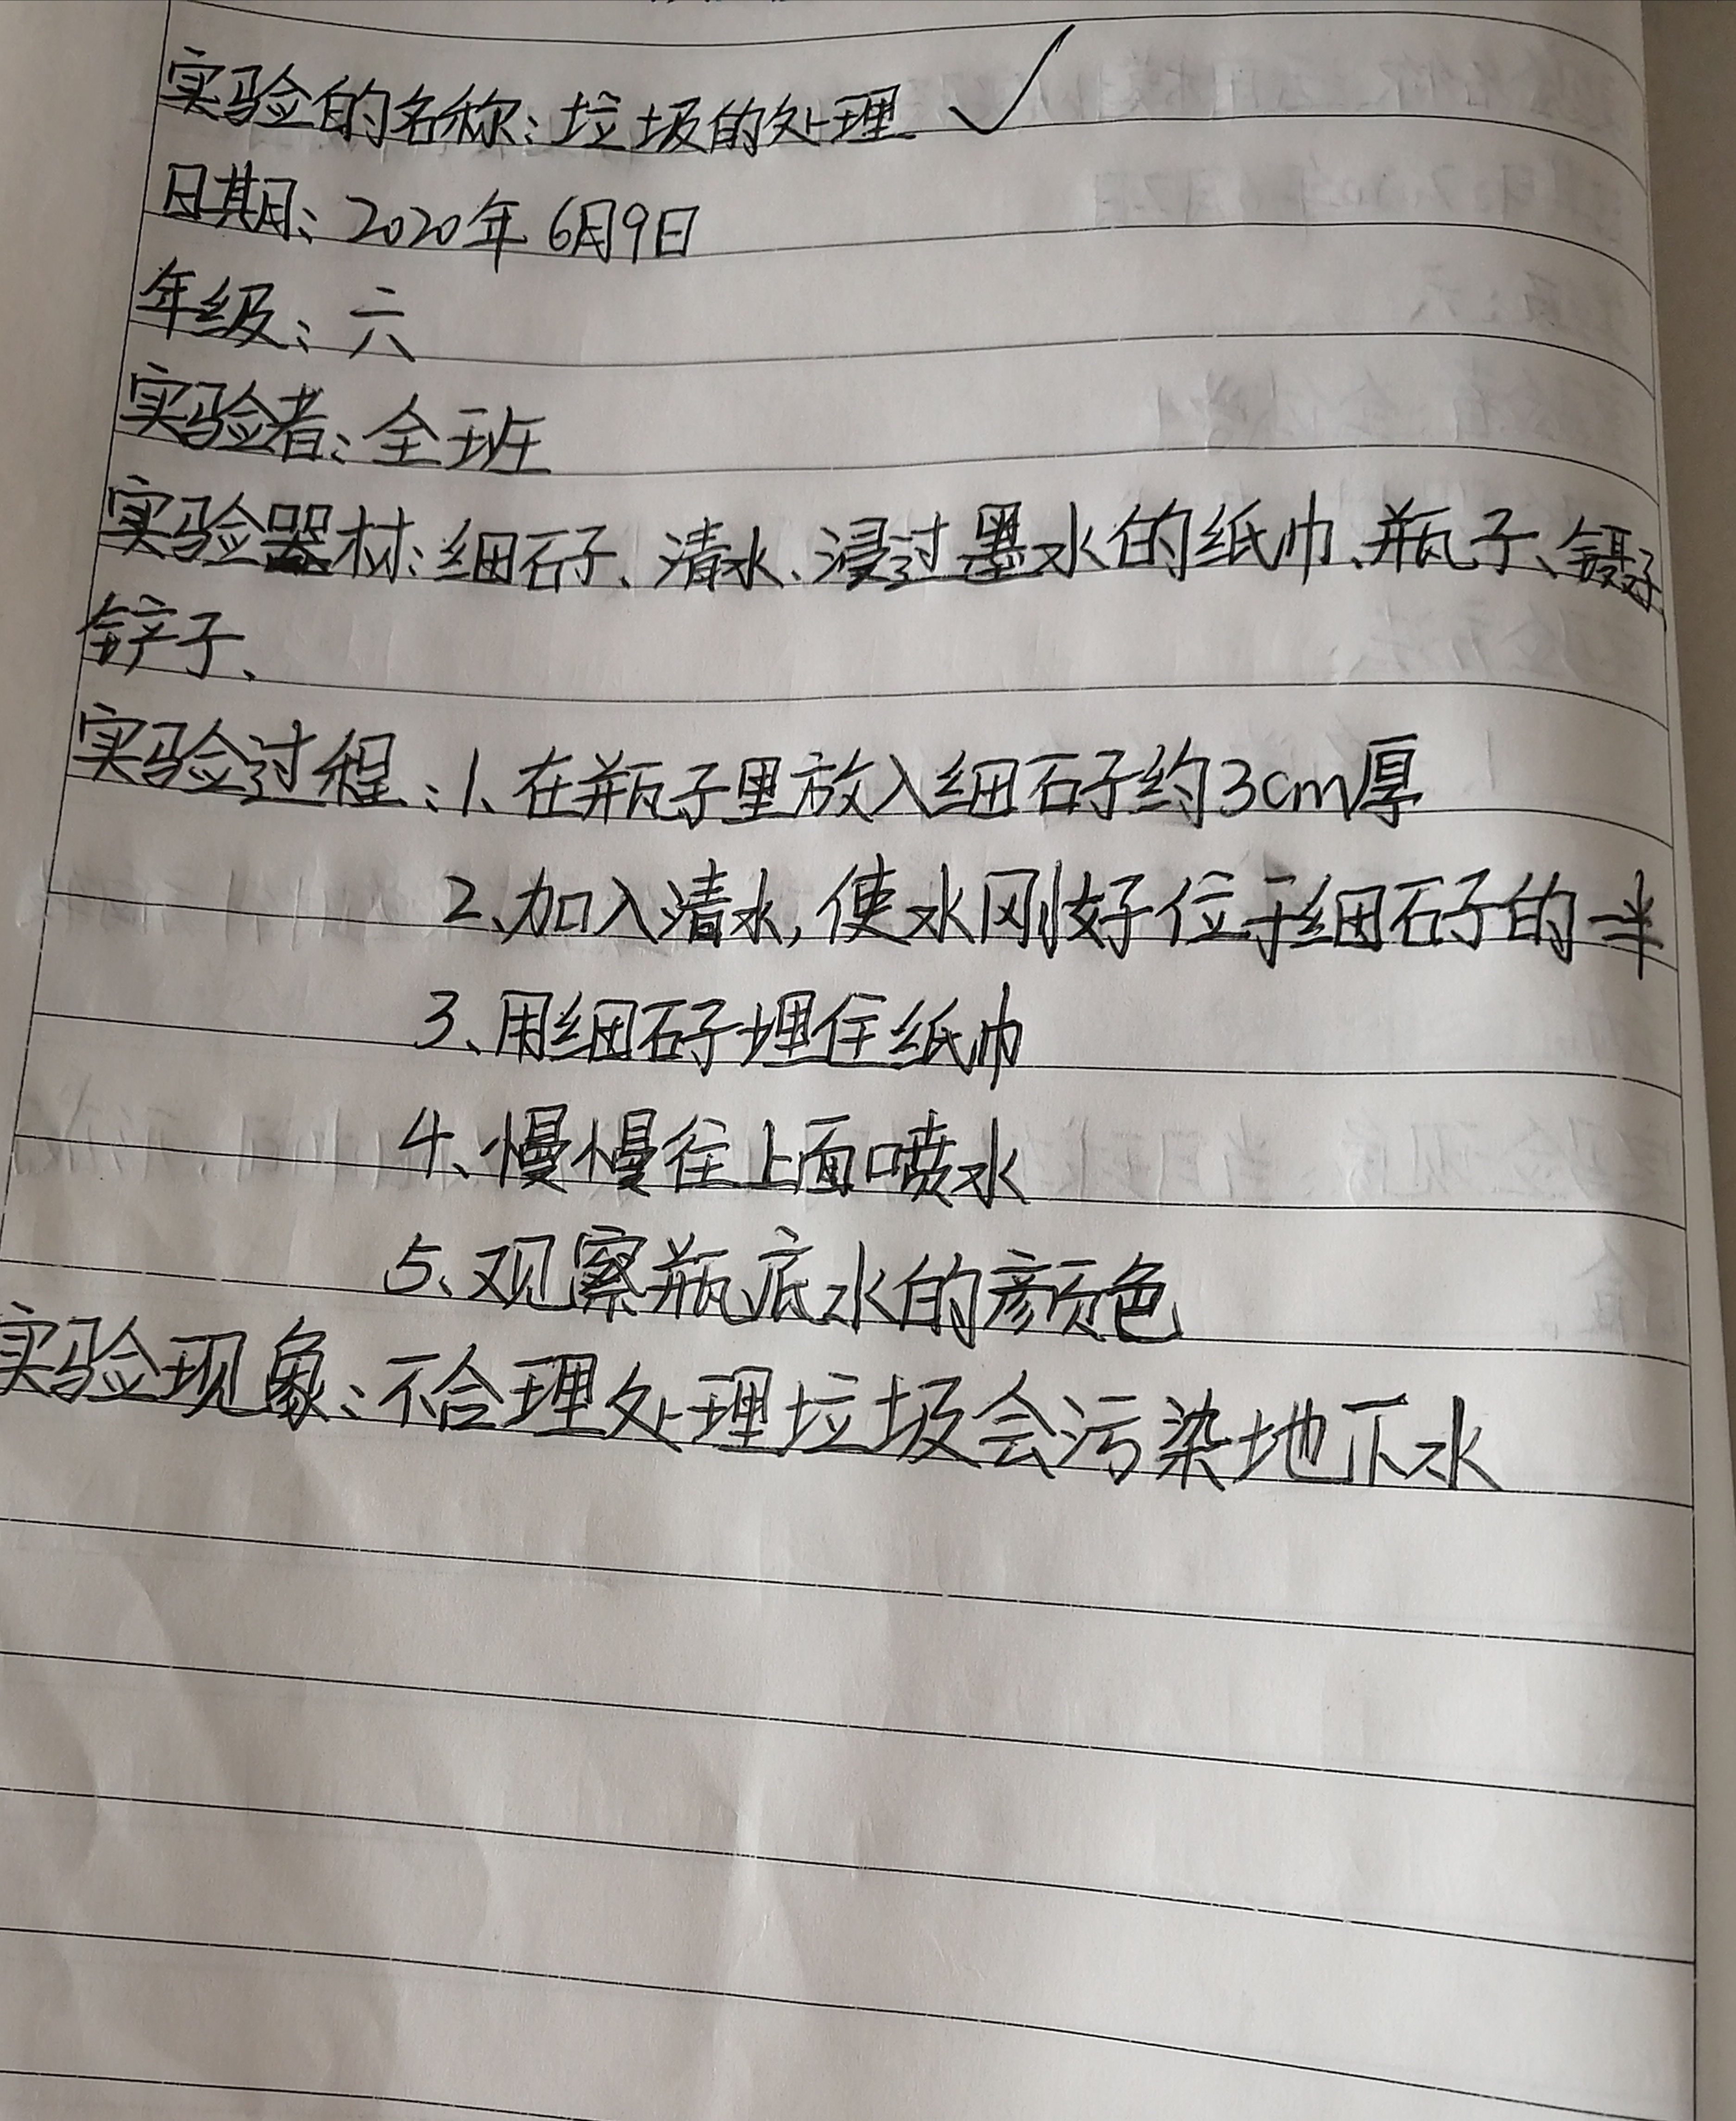 实验的名称:垃圾的处理
日期:2020年6月9日
年级:六
实验者:全班
实验器材:细石子、清水、浸过墨水的纸巾、瓶子、镊子
铲子、
实验过程:1、在瓶子里放入细石子约3cm厚
2、加入清水,使水刚好位于细石子的一半
3、用细石子埋住纸巾
4、慢慢往上面喷水
5、观察瓶底水的颜色
实验现象:不合理处理垃圾会污染地下水